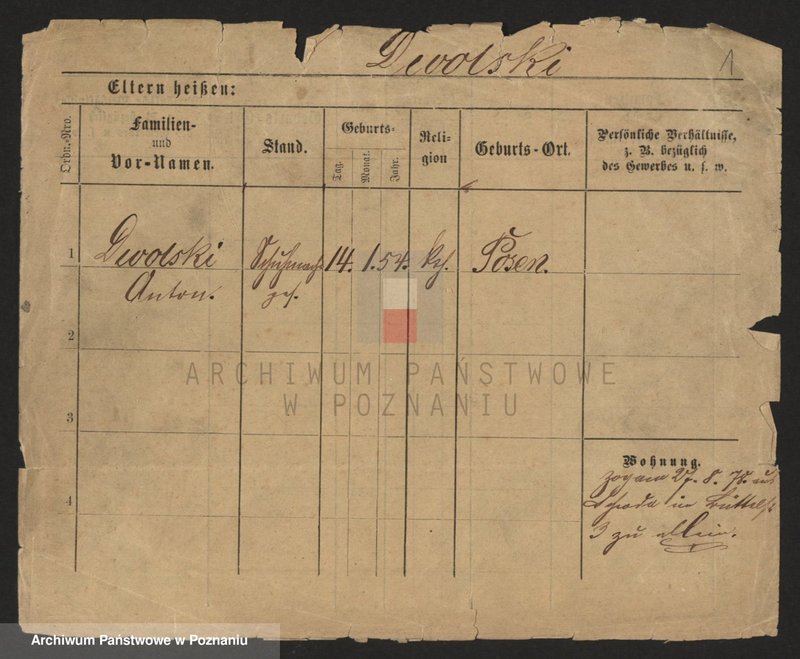 Dwolski
1
Eltern heißen:
Ordn.-Nro.
Familien-
und
Vor-Namen.
Stand.
Geburts-
Tag.
Monat.
Jahr.
Reli-
gion
Geburts-Ort.
Persönliche Verhältnisse,
z. B. bezüglich
des Gewerbes u. s. w.
1
Dwolski
Anton.
Schuhmach
ges.
14.
1.
54.
kth.
Posen.
2
3
4
Wohnung.
zog am 27. 8. 78. aus
Schroda in Büttelst
3 zu allein.
ARCHIWUM PAŃSTWOWE
W POZNANIU
Archiwum Państwowe w Poznaniu